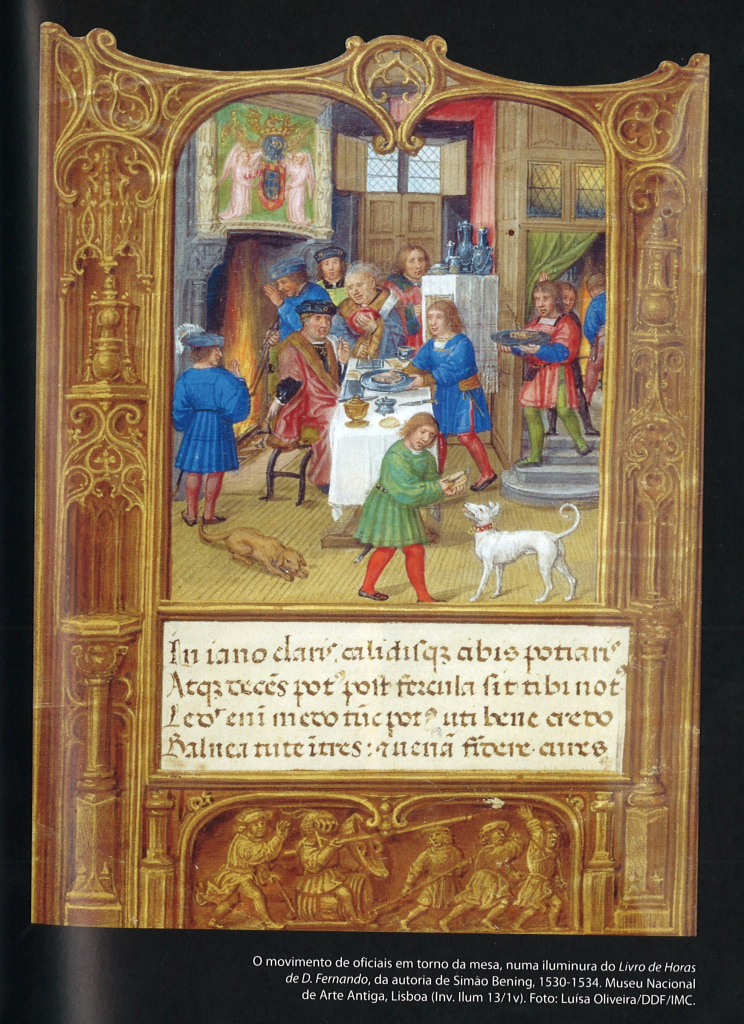 In iano claris calidisqz cibis potiaris
Atqz decēs potꝰ post fercula sit tibi notꝰ
Ledit enī medo tūc potꝰ uti bene credo
Balnea tute ītres: & uenā fīdere cures
O movimento de oficiais em torno da mesa, numa iluminura do Livro de Horas
de D. Fernando, da autoria de Simão Bening, 1530-1534. Museu Nacional
de Arte Antiga, Lisboa (Inv. Ilum 13/1v). Foto: Luísa Oliveira/DDF/IMC.